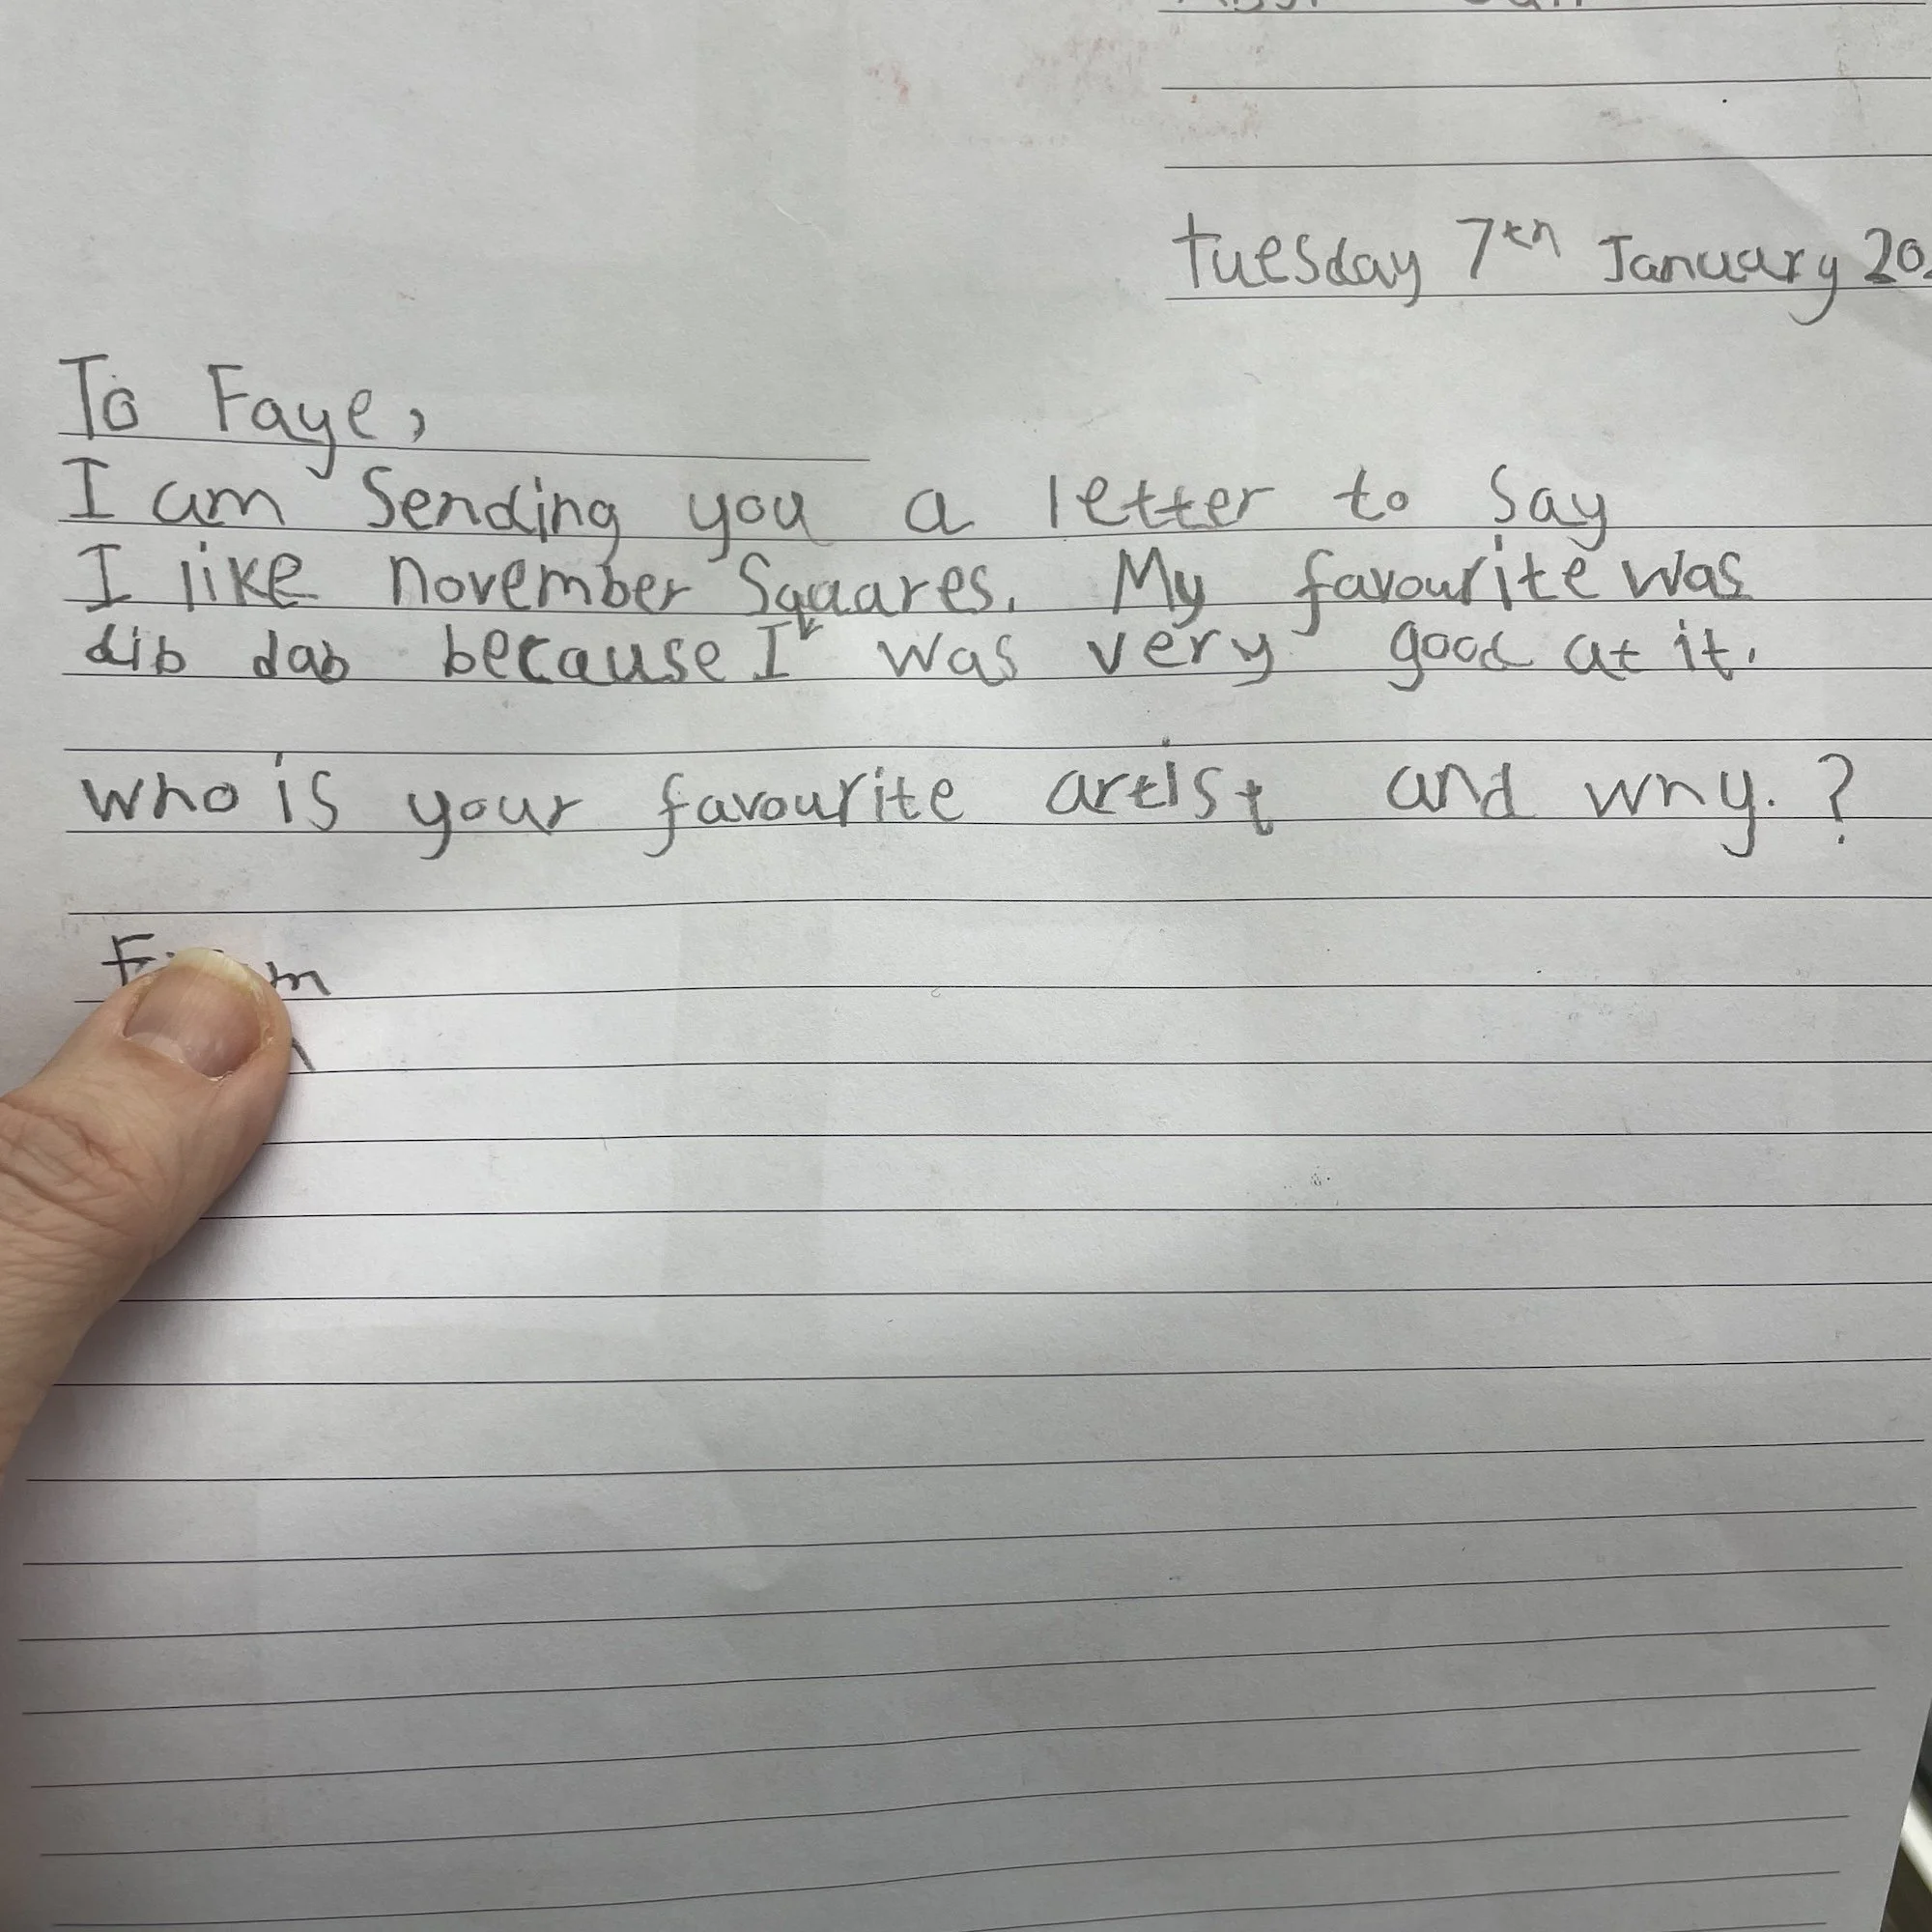 tuesday 7th January
To Faye,
I am Sending you a letter to Say
I like november Squares. My favourite was
dib dab because I was very good at it.
who is your favourite artist and why. ?